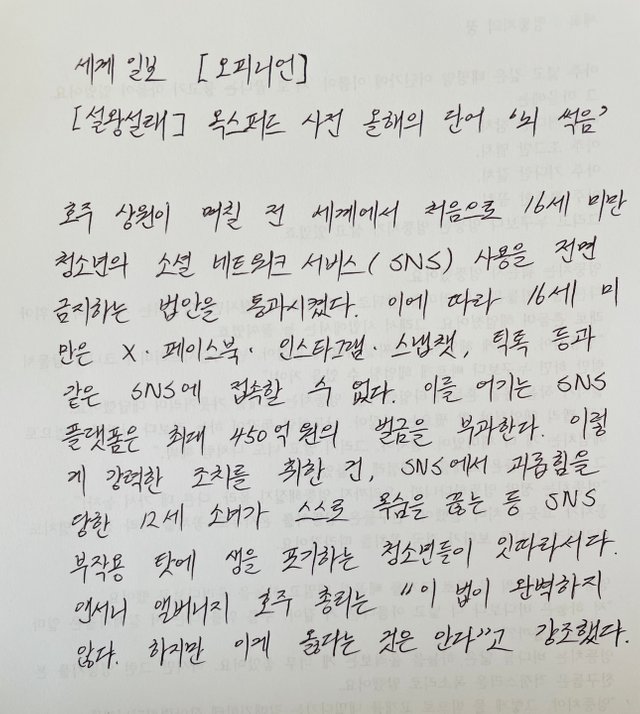 세계 일보 [오피니언]
[설왕설래] 옥스퍼드 사전 올해의 단어 '뇌 썩음'
호주 상원이 며칠 전 세계에서 처음으로 16세 미만
청소년의 소셜 네트워크 서비스(SNS) 사용을 전면
금지하는 법안을 통과시켰다. 이에 따라 16세 미
만은 X·페이스북·인스타그램·스냅챗, 틱톡 등과
같은 SNS에 접속할 수 없다. 이를 어기는 SNS
플랫폼은 최대 450억원의 벌금을 부과한다. 이렇
게 강력한 조치를 취한 건, SNS에서 괴롭힘을
당한 12세 소녀가 스스로 목숨을 끊는 등 SNS
부작용 탓에 생을 포기하는 청소년들이 잇따라서다.
앤서니 앨버니지 호주 총리는 "이 법이 완벽하지
않다. 하지만 이게 옳다는 것은 안다"고 강조했다.